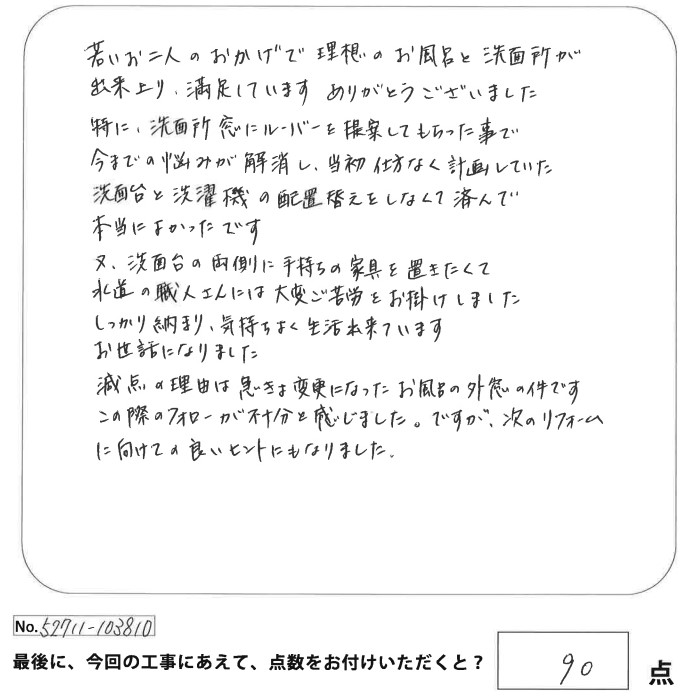 若いお二人のおかげで理想のお風呂と洗面所が
出来上り、満足しています ありがとうございました
特に、洗面所窓にルーバーを提案してもらった事で
今までの悩みが解消し、当初仕方なく計画していた
洗面台と洗濯機の配置替えをしなくて済んで
本当によかったです
又、洗面台の両側に手持ちの家具を置きたくて
水道の職人さんには大変ご苦労をお掛けしました
しっかり納まり、気持ちよく生活出来ています
お世話になりました
減点の理由は急きょ変更になったお風呂の外窓の件です
この際のフォローが不十分と感じました。ですが、次のリフォーム
に向けての良いヒントにもなりました。
No. 52711-103810
最後に、今回の工事にあえて、点数をお付けいただくと？ 90 点